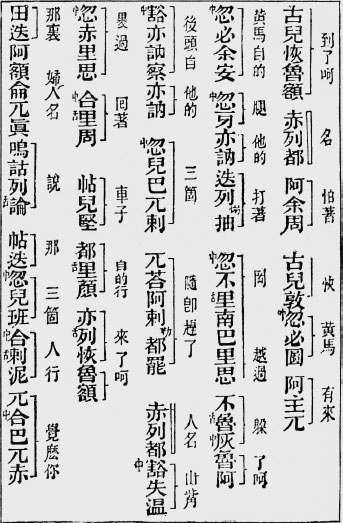 到了呵 名 怕著 恢 黃馬 有來
古兒恢魯額 赤列都 阿余周 古兒敦中忽必圂 阿主兀
黃馬自的 腿 他的 打著 岡 越過 躱 了呵
中忽必余安 中忽牙亦訥 迭列抽 中忽不里南巴里思 不魯灰魯阿
後頭自 他的 三箇 隨卽趕了 人名 山觜
中豁亦訥察亦訥 中忽兒巴兀剌 兀荅阿剌都罷 赤列都中豁失溫
過 囘著 車子 自的行 來了呵
中忽赤里思 中合里周 帖兒堅 都里顏 亦列恢魯額
那裏 婦人名 說 那 三箇 人行 覺麽你
田迭阿額侖兀眞嗚詁列論 帖迭中忽兒班中合剌泥 兀中合巴兀赤